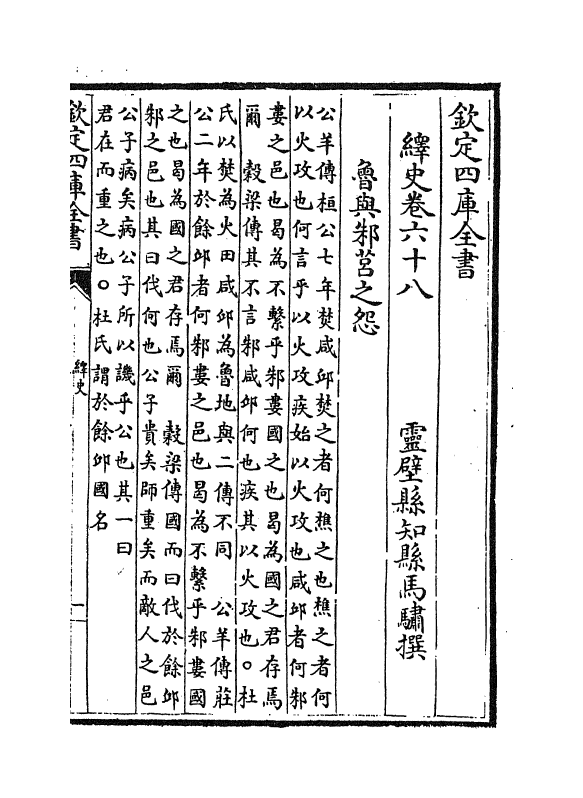 欽定四庫全書
繹史卷六十八
靈壁縣知縣馬驌撰
魯與邾莒之怨
公羊傳桓公七年焚咸邱焚之者何樵之也樵之者何
以火攻也何言乎以火攻疾始以火攻也咸邱者何邾
婁之邑也曷為不繫乎邾婁國之也曷為國之君存焉
爾　穀梁傳其不言邾咸邱何也疾其以火攻也○杜
氏以焚為火田咸邱為魯地與二傳不同　公羊傳莊
公二年於餘邱者何邾婁之邑也曷為不繫乎邾婁國
之也曷為國之君存焉爾　穀梁傳國而曰伐於餘邱
邾之邑也其曰伐何也公子貴矣師重矣而敵人之邑
公子病矣病公子所以譏乎公也其一曰
君在而重之也○杜氏謂於餘邱國名
欽定四庫全書
繹史
一